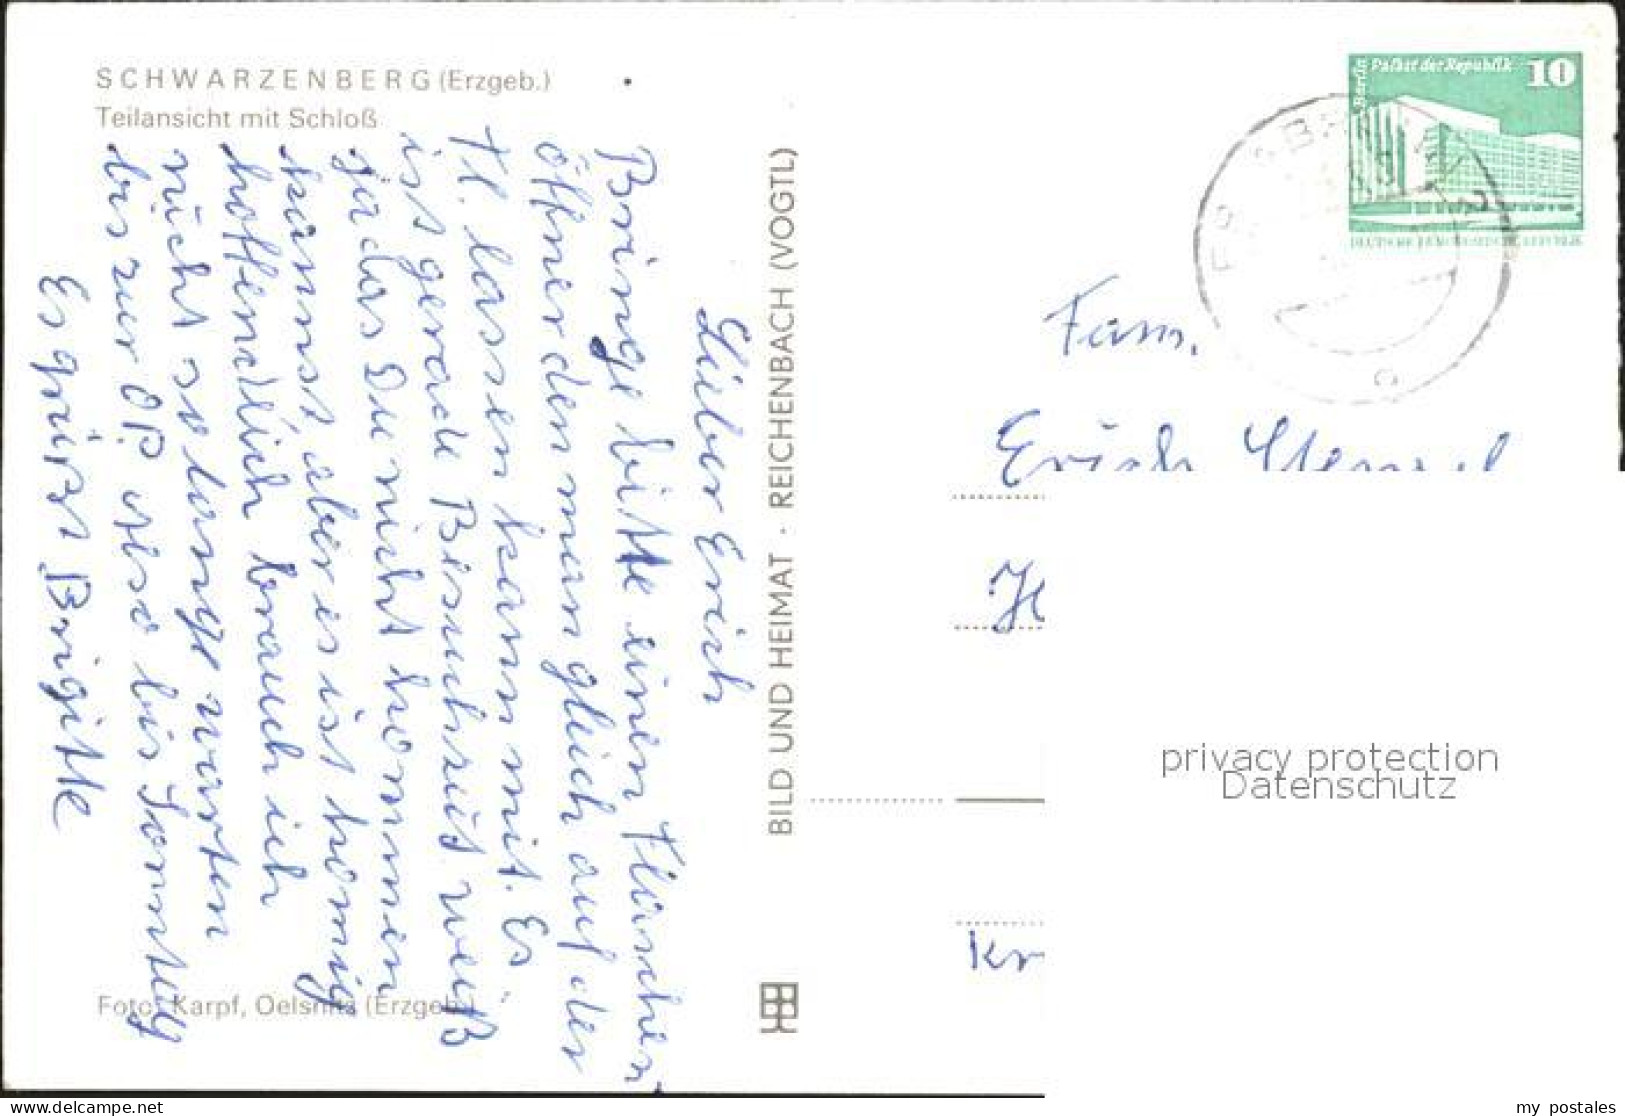 SCHWARZENBERG (Erzgeb.)
Teilansicht mit Schloß
Lieber Erich
Bringe bitte einen Flaschen
öffner den man gleich auf der
Fl. lassen kann mit. Es
ist gerade Besuchszeit weiß
ja das Du nicht kommen
kannst, aber es ist
hoffendlich brauch ich
nicht solange warten
bis zur OP. also bis Sonntag
Es grüßt Brigitte
Foto: Karpf, Oelsnitz (Erzgeb.)
BILD UND HEIMAT · REICHENBACH (VOGTL)
Berlin Palast der Republik 10
DEUTSCHE DEMOKRATISCHE REPUBLIK
Fam.
Erich
H
Kr
privacy protection
Datenschutz
www.delcampe.net
my_postales